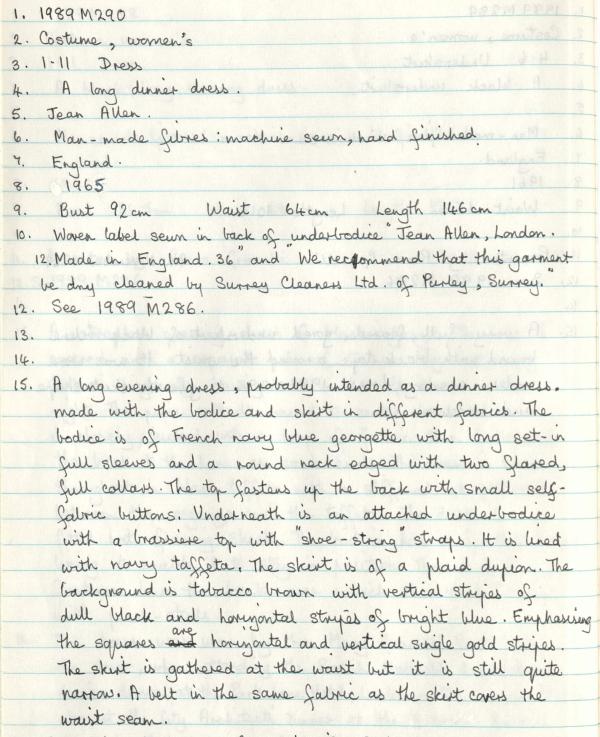 1. 1989 M290
2. Costume, women's
3. 1-11 Dress
4. A long dinner dress.
5. Jean Allen.
6. Man-made fibres: machine sewn, hand finished.
7. England.
8. 1965
9. Bust 92cm Waist 64cm Length 146cm
10. Woven label sewn in back of underbodice "Jean Allen, London.
12. Made in England. 36" and "We recommend that this garment
be dry cleaned by Surrey Cleaners Ltd. of Purley, Surrey."
12. See 1989 M286.
13.
14.
15. A long evening dress, probably intended as a dinner dress.
made with the bodice and skirt in different fabrics. The
bodice is of French navy blue georgette with long set-in
full sleeves and a round neck edged with two flared,
full collars. The top fastens up the back with small self-
fabric buttons. Underneath is an attached underbodice
with a brassiere top with "shoe-string" straps. It is lined
with navy taffeta. The skirt is of a plaid dupion. The
background is tobacco brown with vertical stripes of
dull black and horizontal stripes of bright blue. Emphasising
the squares are horizontal and vertical single gold stripes.
The skirt is gathered at the waist but it is still quite
narrow. A belt in the same fabric as the skirt covers the
waist seam.